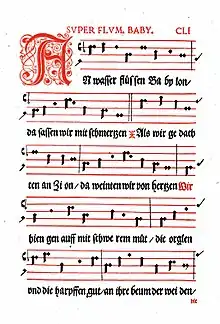 SVPER FLVM. BABY. CLI
AN wasser flüssen Ba by lon/
da sassen wir mit schmertzen Als wir ge dach
ten an Zi on/ da weinten wir von hertzen Wir
hien gen auff mit schwe rem müt/ die orglen
vnd die harpffen gut/ an ihre beum der wei den/